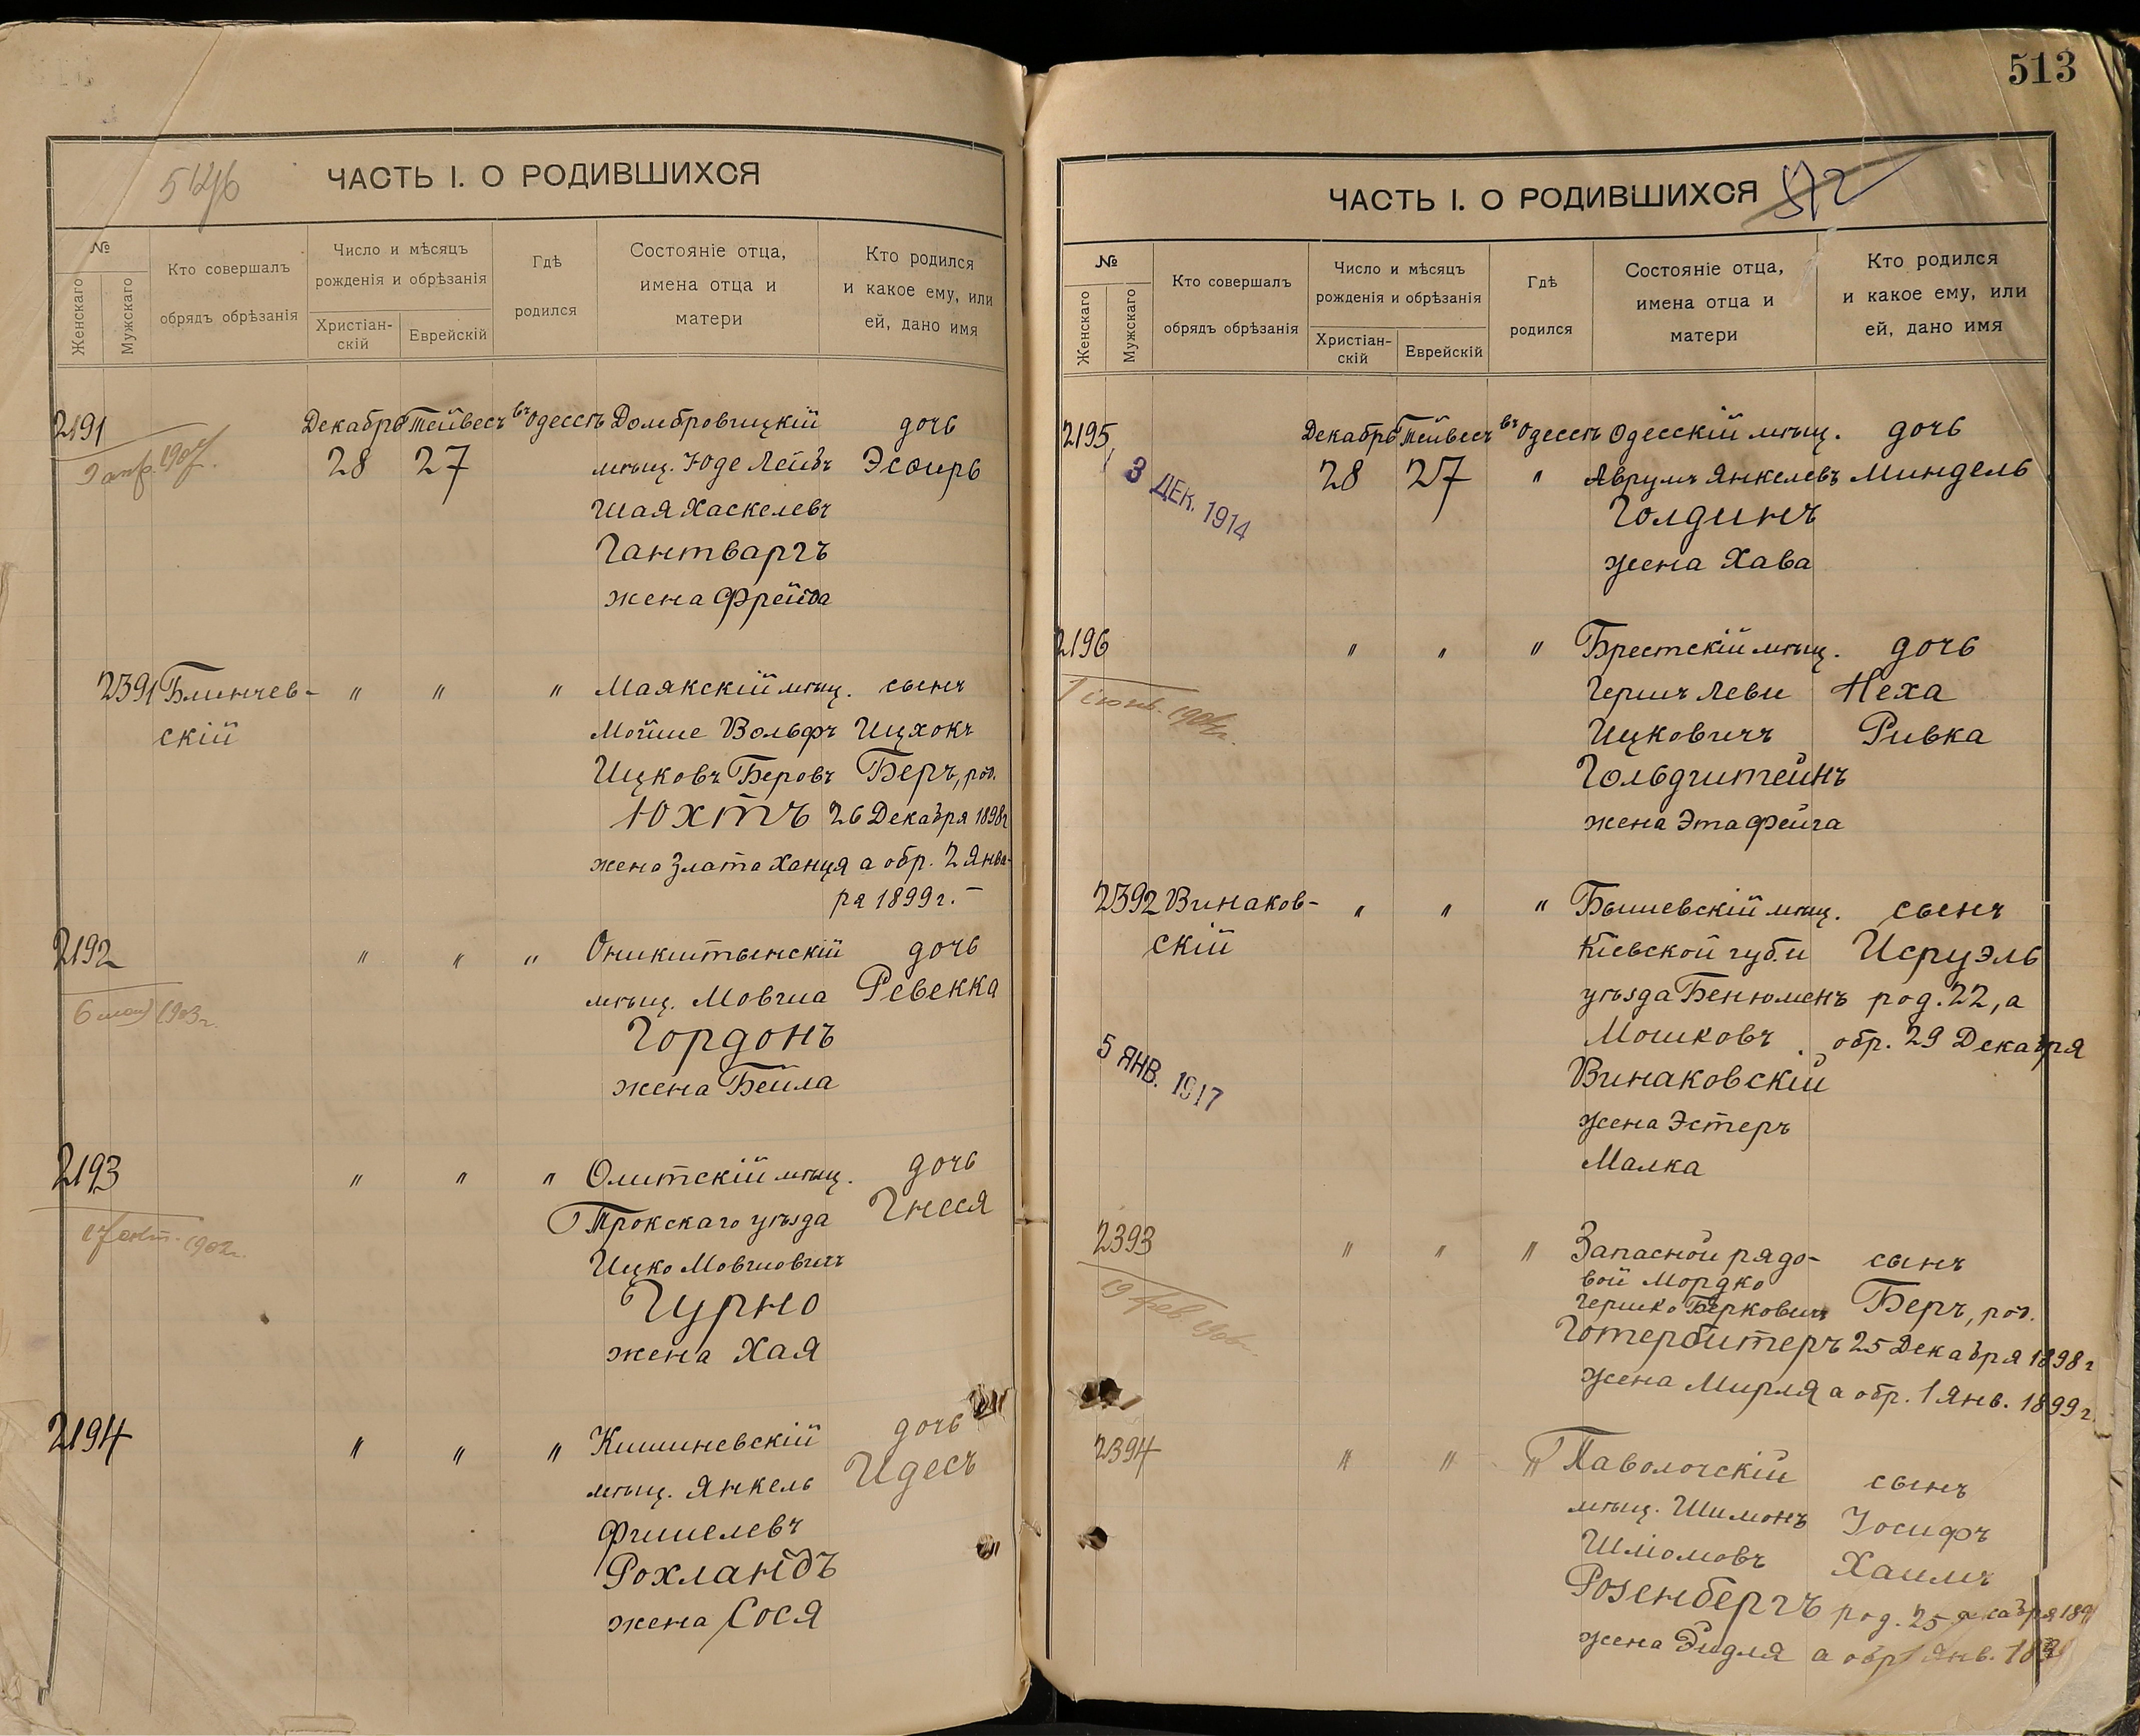 546
ЧАСТЬ I. О РОДИВШИХСЯ
№
Женскаго
Мужскаго
Кто совершалъ
обрядъ обрѣзанія
Число и мѣсяцъ
рожденія и обрѣзанія
Христіан-
скій
Еврейскій
Гдѣ
родился
Состояніе отца,
имена отца и
матери
Кто родился
и какое ему, или
ей, дано имя
2191 Декабрь Тейвесъ въ Одессѣ Домбровицкій дочь
28 27 мѣщ. Юде Лейбъ Эсѳирь
1907г.
Шая Хаскелевъ
Гантваргъ
жена Фрейда
2391 Блинчев- " " " Маякскій мѣщ. сынъ
скій Мойше Вольфъ Ицхокъ
Ицковъ Беровъ Беръ, род.
Юхтъ 26 Декабря 1898г
жена Злата Ханця а обр. 2 Янва-
ря 1899г. –
2192 " " " Оникштынскій дочь
мѣщ. Мовша Ревекка
6 1903г.
Гордонъ
жена Бейла
2193 " " " Олитскій мѣщ. дочь
Трокскаго уѣзда Гнеся
17 окт. 1902г.
Ицко Мовшовичъ
Гурно
жена Хая
2194 " " " Кишиневскій дочь
мѣщ. Янкель Идесъ
Фишелевъ
Рохландъ
жена Сося
513
ЧАСТЬ I. О РОДИВШИХСЯ 512
№
Женскаго
Мужскаго
Кто совершалъ
обрядъ обрѣзанія
Число и мѣсяцъ
рожденія и обрѣзанія
Христіан-
скій
Еврейскій
Гдѣ
родился
Состояніе отца,
имена отца и
матери
Кто родился
и какое ему, или
ей, дано имя
2195 Декабрь Тейвесъ въ Одессѣ Одесскій мѣщ. дочь
28 27 " Аврумъ Янкелевъ Миндель
3 ДЕК. 1914
Голдинъ
жена Хава
2196 " " " Брестскій мѣщ. дочь
Гершъ Леви Неха
Ицковичъ Ривка
Гольдштейнъ
жена Эта Фейга
2392 Винаков- " " " Бышевскій мѣщ. сынъ
скій Кіевской губ. и Исруэль
уѣзда Бенюменъ род. 22, а
Мошковъ обр. 29 Декабря
5 ЯНВ. 1917
Винаковскій
жена Эстеръ
Малка
2393 " " " Запасной рядо- сынъ
вой Мордко
Гершко Берковичъ Беръ, род.
19 фев. 1906г.
Готербитеръ 25 Декабря 1898г
жена Мирля а обр. 1 Янв. 1899г.
2394 " " " Паволочскій сынъ
мѣщ. Шимонъ Іосифъ
Шліомовъ Хаимъ
Розенбергъ род. 25 Декабря
жена Эидля а обр 1 Янв.